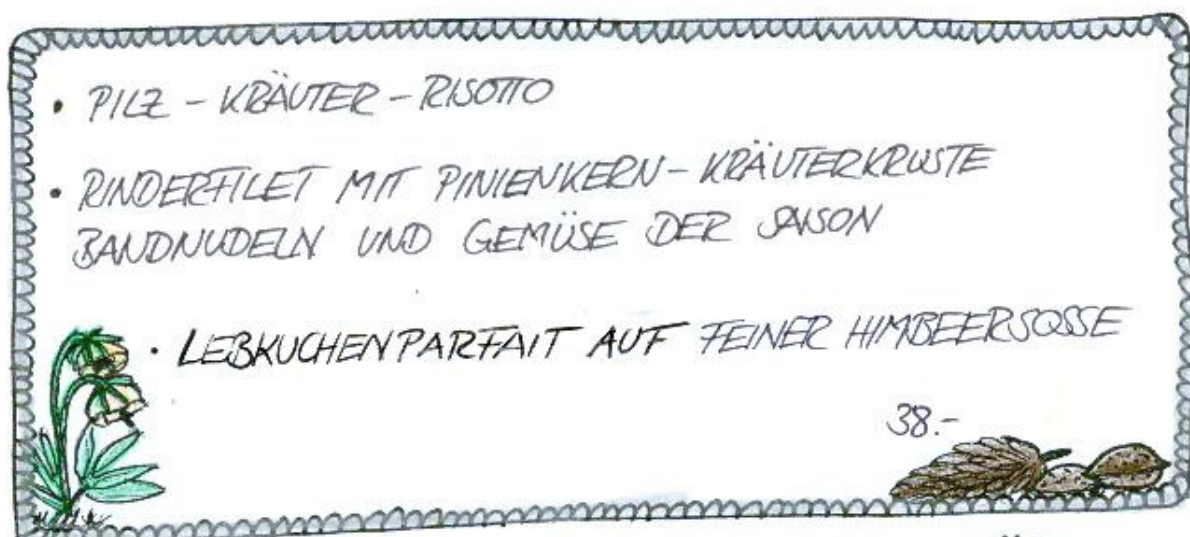 • PILZ - KRÄUTER - RISOTTO
• RINDERFILET MIT PINIENKERN - KRÄUTERKRUSTE
BANDNUDELN UND GEMÜSE DER SAISON
• LEBKUCHENPARFAIT AUF FEINER HIMBEERSOSSE
38.-